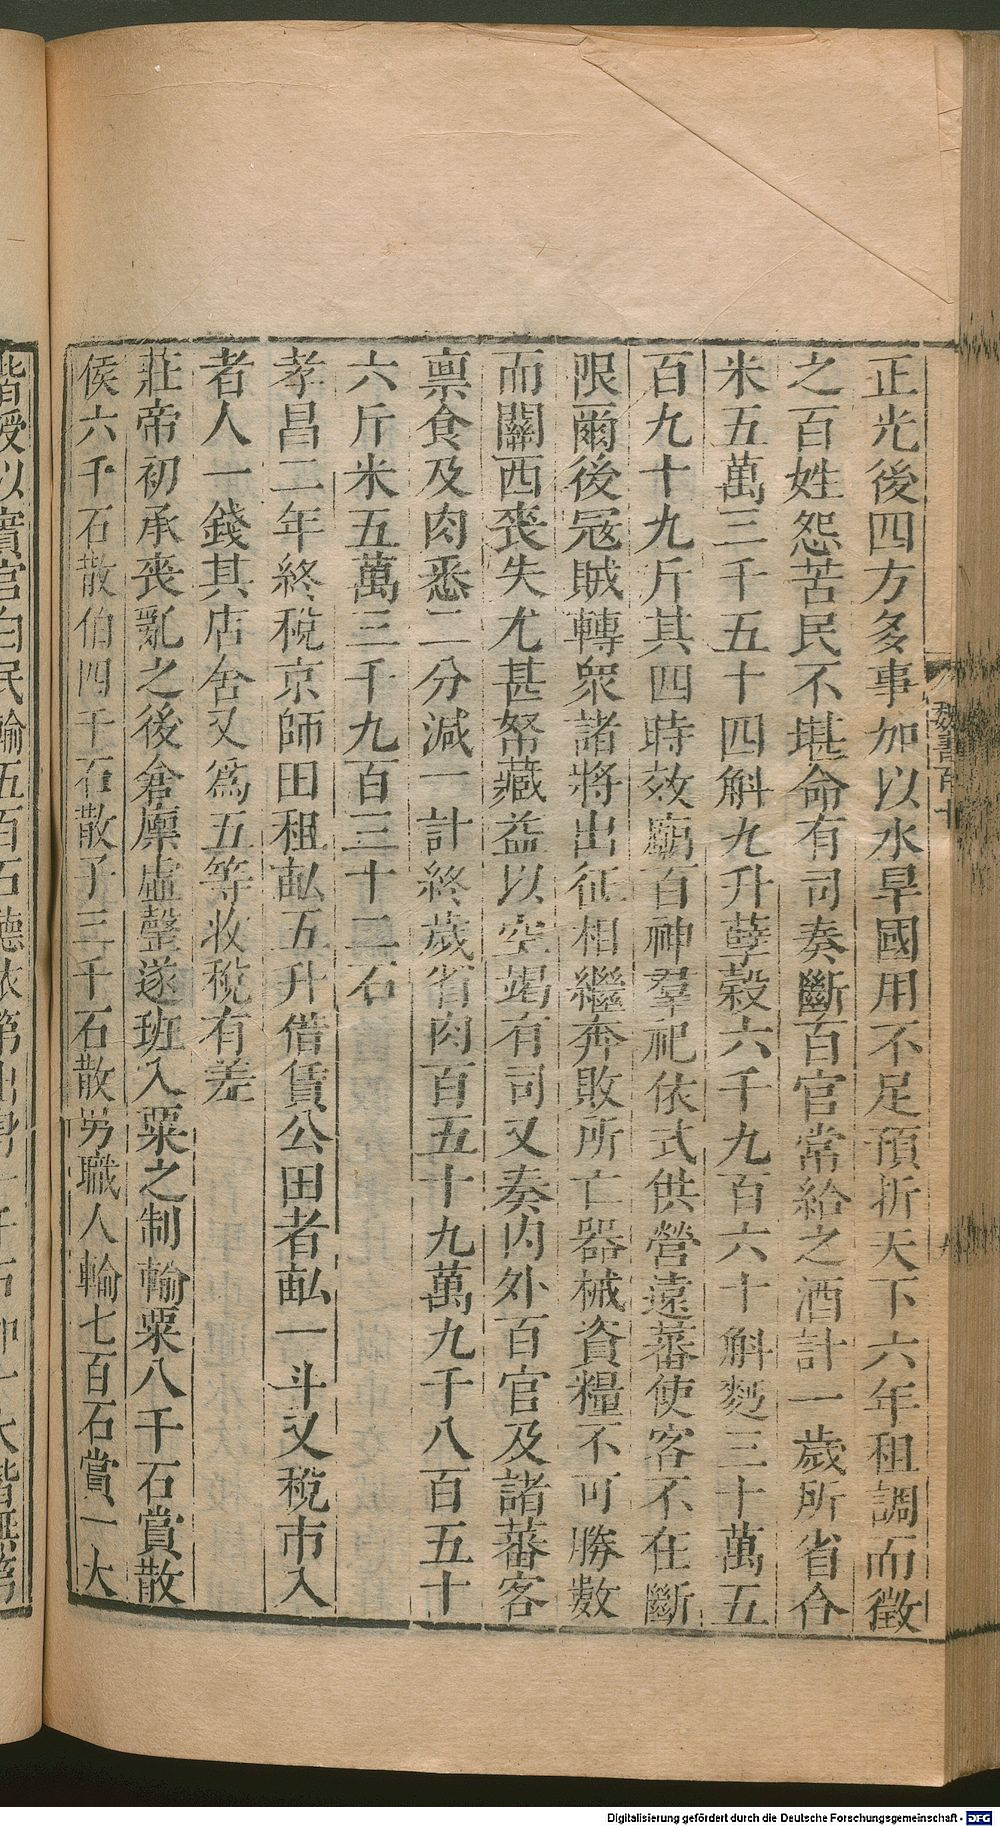 正光後四方多事加以水旱國用不足預折天下六年租調而徵
之百姓怨苦民不堪命有司奏斷百官常給之酒計一歲所省合
米五萬三千五十四斛九升糵穀六千九百六十斛麪三十萬五
百九十九斤其四時效廟百神羣祀依式供營遠蕃使客不在斷
限爾後寇賊轉衆諸將出征相繼奔敗所亡器械資糧不可勝數
而關西喪失尤甚帑藏益以空竭有司又奏內外百官及諸蕃客
稟食及肉悉二分減一計終歲省肉百五十九萬九千八百五十
六斤米五萬三千九百三十二石
孝昌二年終稅京師田租畝五升借賃公田者畝一斗又稅市入
者人一錢其店舍又爲五等收稅有差
莊帝初承喪亂之後倉廩虛罄遂班入粟之制輸粟八千石賞散
侯六千石散伯四千石散子三千石散男職人輸七百石賞一大
階授以實官白民輸五百石聽依第出身一千石加一大階無第
魏書百十
Digitalisierung gefördert durch die Deutsche Forschungsgemeinschaft - DFG